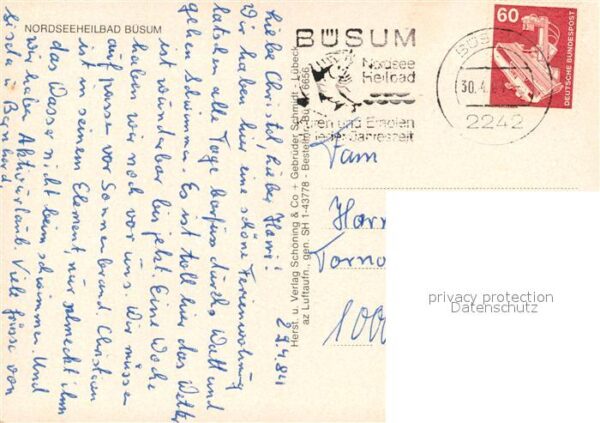 NORDSEEHEILBAD BÜSUM
29.4.84
Liebe Christel, lieber Harri!
Wir haben hier eine schöne Ferienwohnung
latschen alle Tage barfuss durchs Watt und
gehen schwimmen. Es ist toll hier das Wetter
ist wunderbar bis jetzt. Eine Woche
haben wir noch vor uns. Wir müssen
aufpassen vor Sonnenbrand. Christian
ist in seinem Element, nur schmeckt ihm
das Wasser nicht beim schwimmen. Und
wir haben Aktivurlaub. Viele Grüsse von
Bernhard.
Herst. u. Verlag Schöning & Co + Gebrüder Schmidt, Lübeck
az Luftaufn., gen. SH 1-43778 - Bestellnr. Bü 6656
BÜSUM
Nordsee
Heilbad
Kuren und Erholen
jeder Jahreszeit
30.4.
2242
60
DEUTSCHE BUNDESPOST
Fam
Harr
Torno
1000
privacy protection
Datenschutz